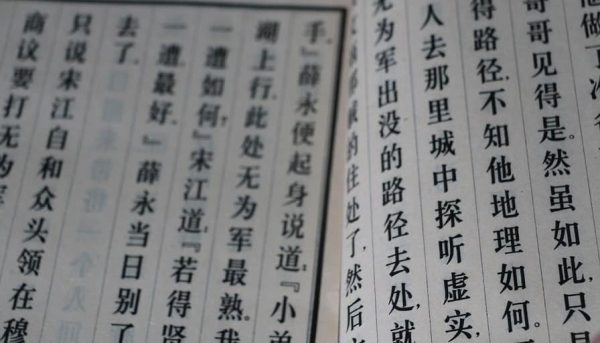 他做了
哥哥见得是。然虽如此,只是
得路径,不知他地理如何。
人去那里城中探听虚实,
无为军出没的路径去处,就
的住处了,然后
手。』薛永便起身说道:『小弟
湖上行,此处无为军最熟。我
一遭如何?』宋江道:『若得贤
一遭最好。』薛永当日别了
去了。
只说宋江自和众头领在穆
商议要打无为军